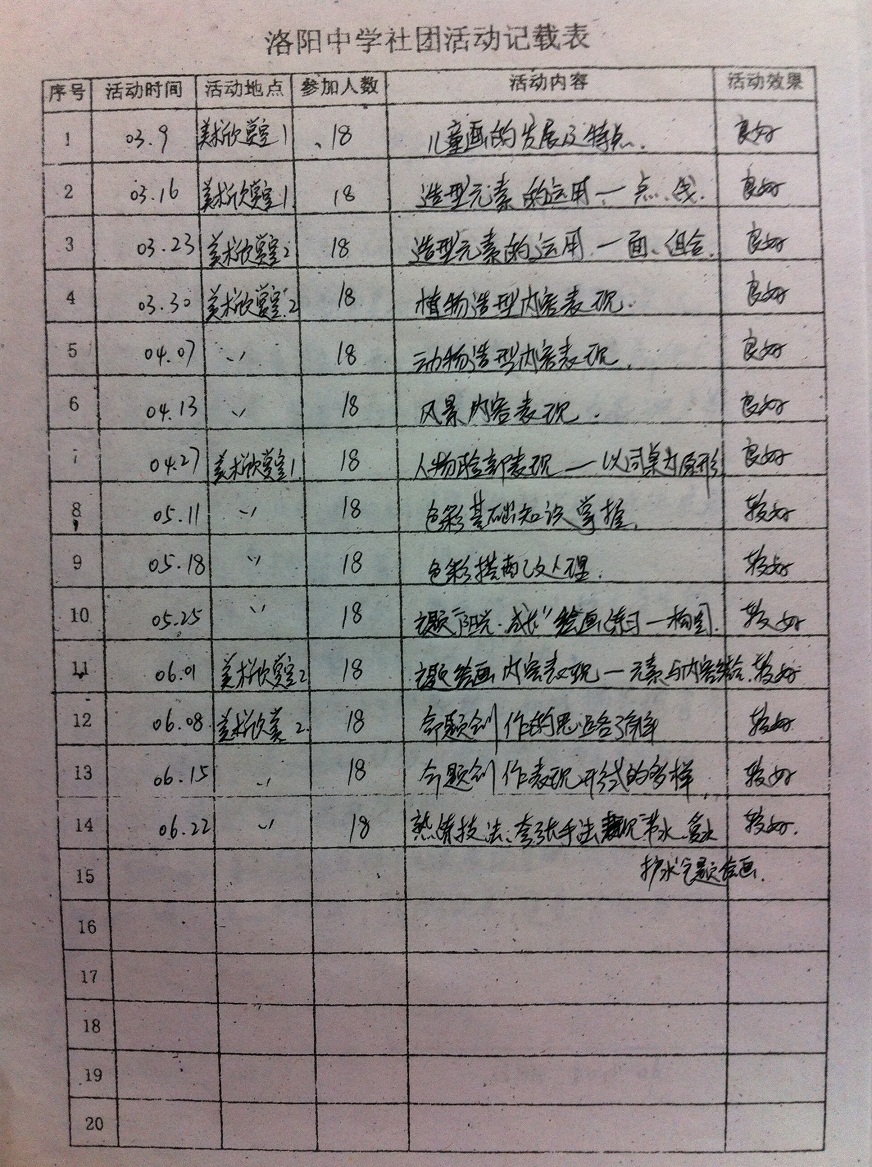 洛阳中学社团活动记载表
序号 活动时间 活动地点 参加人数 活动内容 活动效果
1 03.9 美术欣赏室1 18 儿童画的发展及特点. 良好
2 03.16 美术欣赏室1 18 造型元素的运用—点、线. 良好
3 03.23 美术欣赏室2 18 造型元素的运用—面、组合. 良好
4 03.30 美术欣赏室2 18 植物造型内容表现. 良好
5 04.07 〃 18 动物造型内容表现. 良好
6 04.13 〃 18 风景内容表现. 良好
7 04.27 美术欣赏室1 18 人物脸部表现—以同桌为原形 良好
8 05.11 〃 18 色彩基础知识掌握. 较好
9 05.18 〃 18 色彩搭配及处理. 较好
10 05.25 〃 18 主题"阳光·成长"绘画练习—构图. 较好
11 06.01 美术欣赏室2 18 主题绘画内容表现—元素与内容结合. 较好
12 06.08 美术欣赏2 18 命题创作的思路 较好
13 06.15 〃 18 命题创作表现形式的多样 较好
14 06.22 〃 18 熟练技法、夸张手法表现"节水、爱水 较好.
15 护水"主题绘画.
16
17
18
19
20